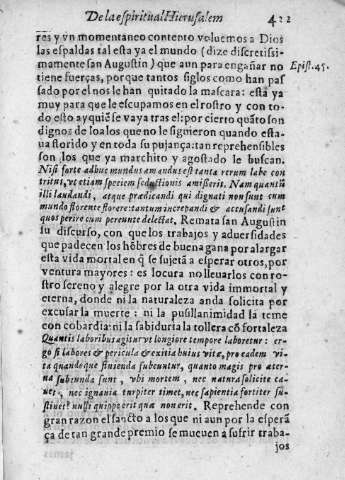 De la espiritual Hierusalem 422
res y vn momentaneo contento voluemos a Dios
las espaldas tal esta ya el mundo (dize discretissi-
mamente san Augustin) que aun para engañar no Epist. 45.
tiene fuerças, porque tantos siglos como han pas
sado por el nos le han quitado la mascara: està ya
muy para que le escupamos en el rostro y con to-
do esto ay quiẽ se vaya tras el: por cierto quãto son
dignos de loa los que no le siguieron quando esta-
ua florido y en toda su pujança: tan reprehensibles
son los que ya marchito y agostado le buscan.
Nisi forte adhuc mundus amandus est tanta rerum labe con
tritus, vt etiam speciem seductionis amiserit. Nam quantũ
illi laudandi, atque prædicandi qui dignati non sunt cum
mundo florente florere: tantum increpandi & accusandi sunt
quos perire cum pereunte delectat. Remata san Augustin
su discurso, con que los trabajos y aduersidades
que padecen los hõbres de buena gana por alargar
esta vida mortal en q̃ se sujetã a esperar otros, por
ventura mayores: es locura no lleuarlos con ro-
stro sereno y alegre por la otra vida immortal y
eterna, donde ni la naturaleza anda solicita por
excusar la muerte: ni la pusillanimidad la teme
con cobardia: ni la sabiduria la tollera cõ fortaleza
Quantis laboribus agitur vt longiore tempore laboretur: er-
go si labores & pericula & exitia huius vitæ, pro eadem vi-
ta quandoque finienda subeuntur, quanto magis pro æter-
na subeunda sunt, vbi mortem, nec natura solicite ca-
uet, nec ignauia turpiter timet, nec sapientia fortiter su-
stinet: nulli quippe erit quæ non erit. Reprehende con
gran razon el sancto a los que ni aun por la esperã
ça de tan grande premio se mueuen a sufrir traba-
jos